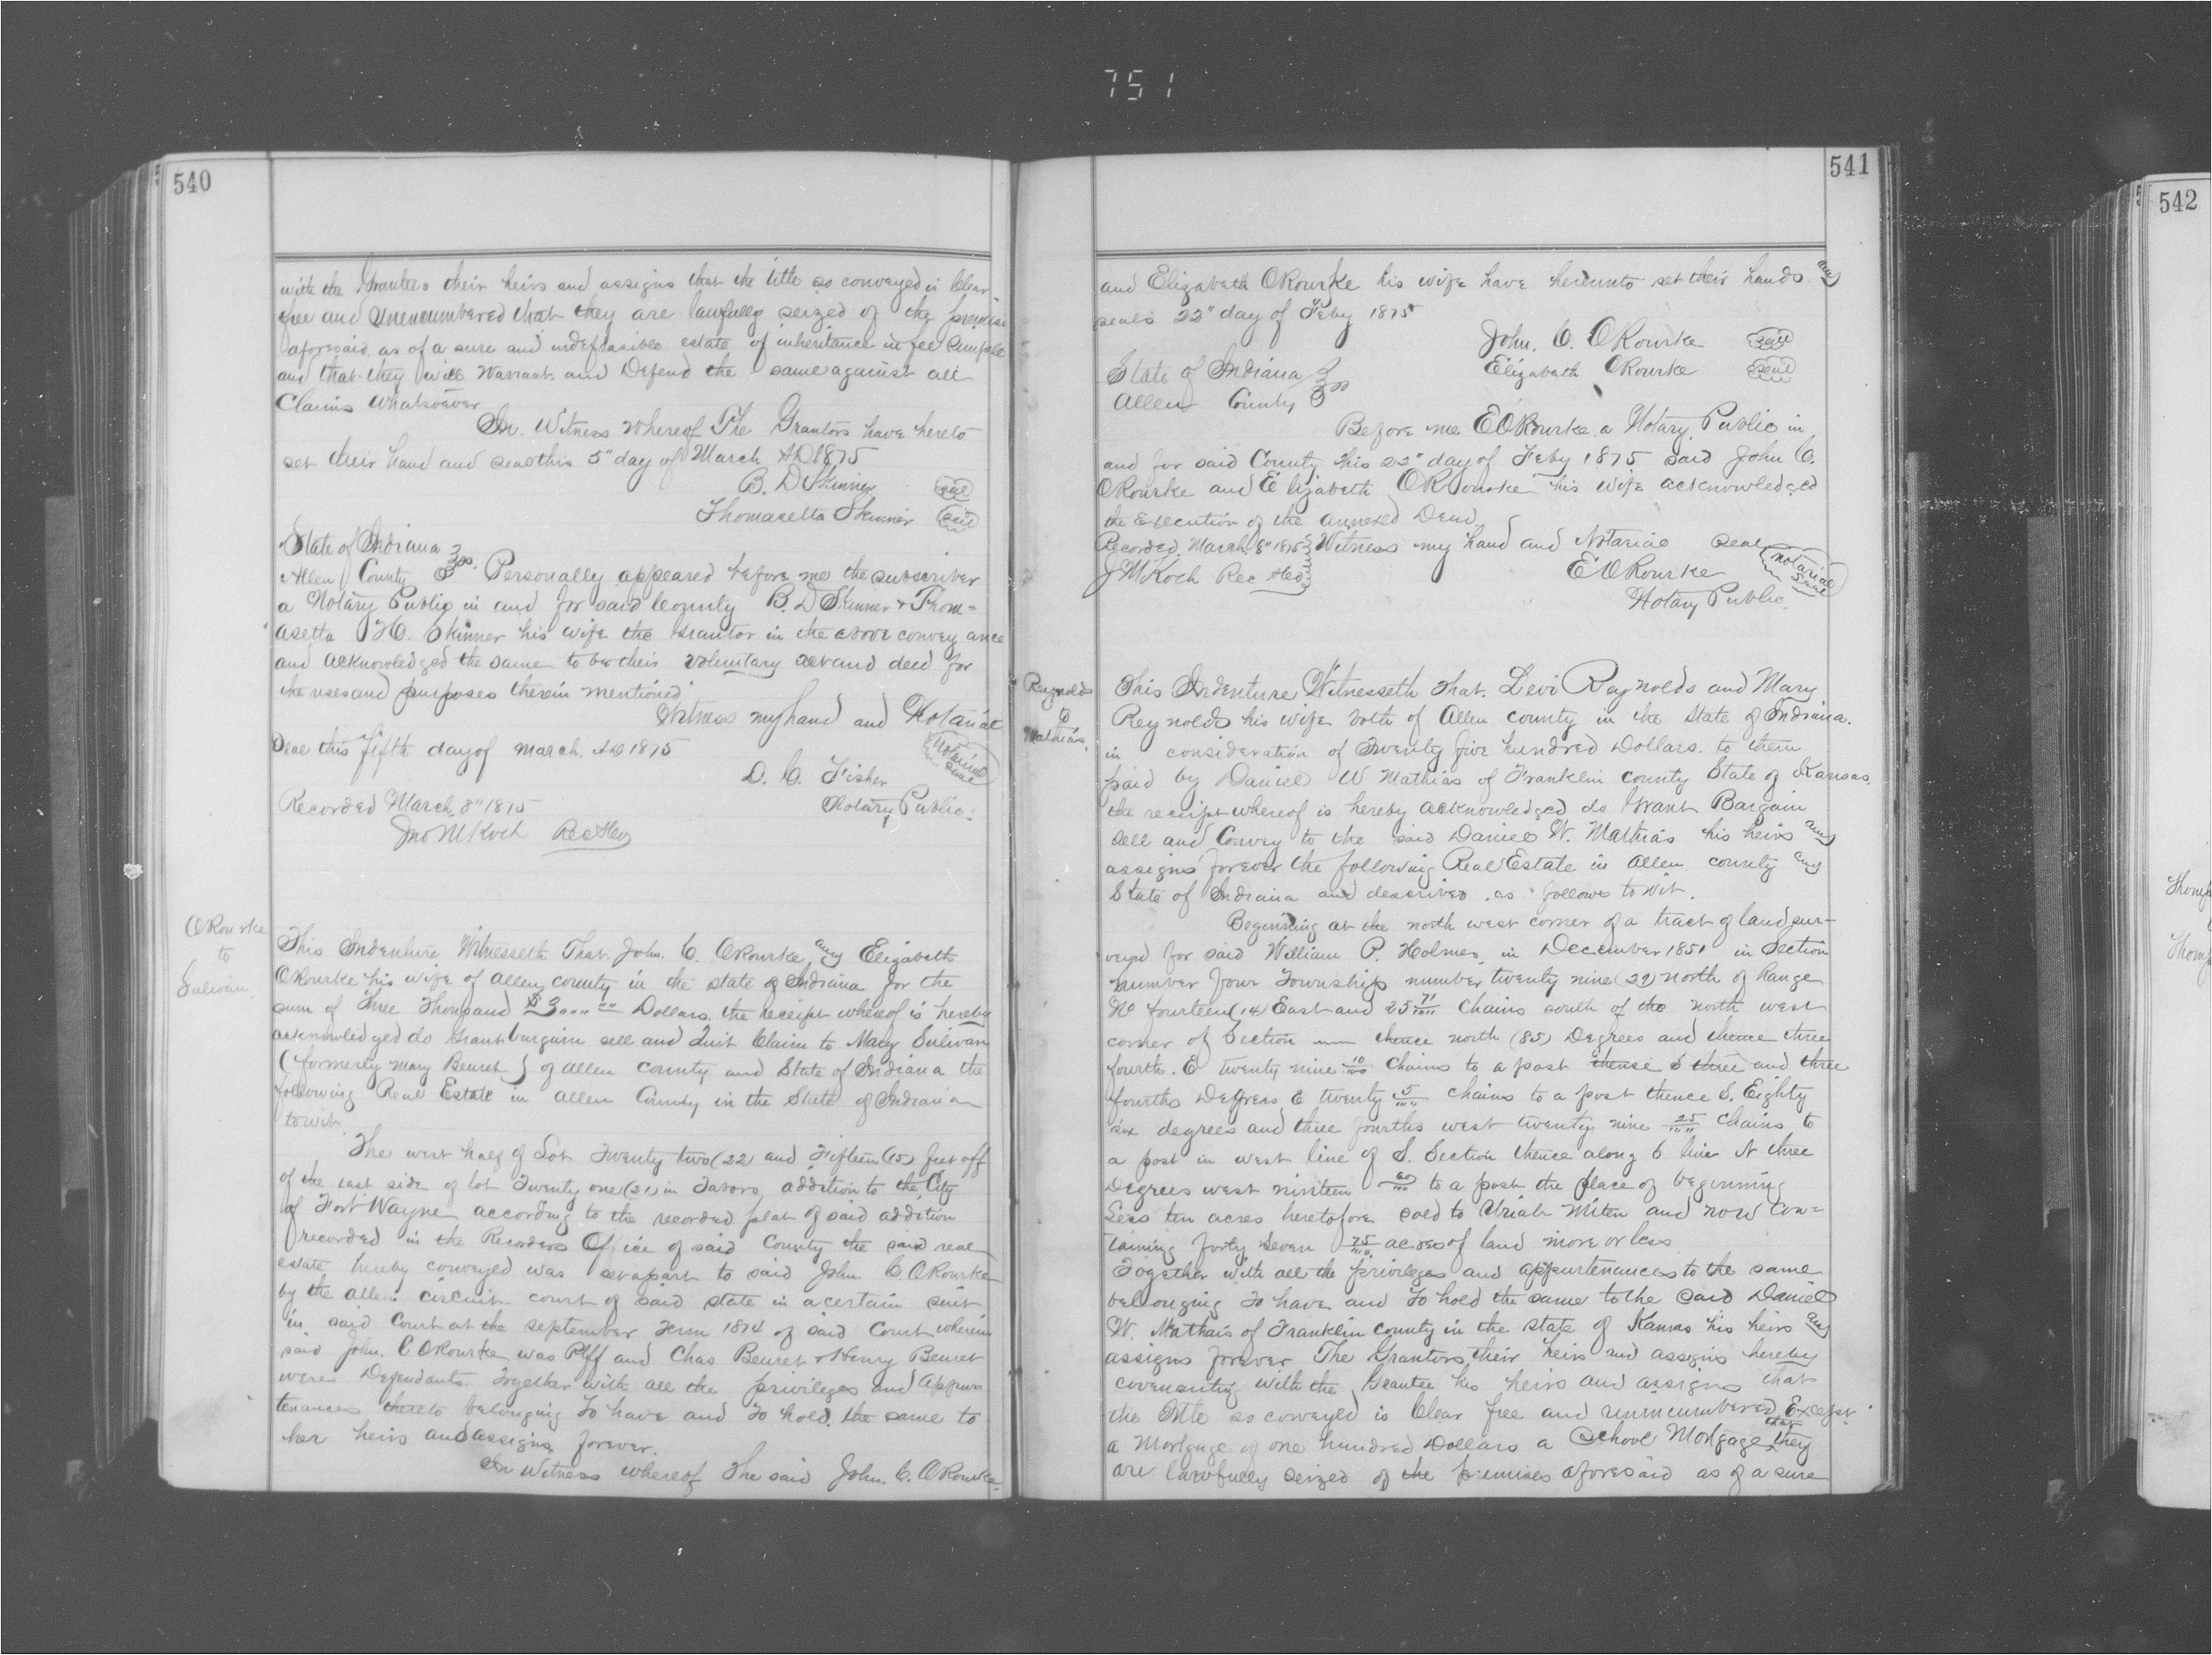 751
540
with the Grantees their heirs and assigns that the title so conveyed is Clear
free and Unencumbered that they are lawfully seized of the premises
aforesaid as of a sure and indefeasible estate of inheritance in fee Simple
and that they will Warrant and Defend the same against all
Claims Whatsoever
In Witness Whereof The Grantors have hereto
set their hand and seal this 5" day of March AD 1875
B. D Skinner seal
Thomasetta Skinner seal
State of Indiana
Allen County ss. Personally appeared before me the subscriber
a Notary Public in and for said County B. D Skinner & Thom-
asetta H. Skinner his wife the Grantor in the above convey ance
and acknowledged the same to be their voluntary act and deed for
the uses and purposes therein mentioned
Witness my hand and Notarial
Seal this fifth day of March. AD 1875
Notarial Seal
D. C. Fisher
Notary Public.
Recorded March 8" 1875
Jno M Koch Rec
ORourke
to
Sulivan.
This Indenture Witnesseth That John. C. ORourke and Elizabeth
ORourke his wife of Allen county in the state of Indiana for the
sum of Three Thousand $3 Dollars. the receipt whereof is hereby
acknowledged do Grant bargain sell and Quit Claim to Mary Sulivan
(formerly Mary Beuret) of Allen county and State of Indiana the
following Real Estate in Allen County in the State of Indiana
towit
The west half of Lot Twenty two (22) and Fifteen (15) feet off
of the east side of lot Twenty one (21) in addition to the City
of Fort Wayne according to the recorded plat of said addition
recorded in the Recorders Office of said County the said real
estate hereby conveyed was set apart to said John C. ORourke
by the Allen circuit court of said state in a certain suit
in said Court at the September Term 1874 of said Court wherein
said John. C ORourke was Plff and Chas Beuret & Henry Beuret
were Defendants. Together with all the privileges and appur
tenances thereto belonging To have and To hold the same to
her heirs and assigns forever.
In Witness whereof The said John. C. ORourke
541
and Elizabeth ORourke his wife have hereunto set their hands and
seals 22" day of Feby 1875
John. C. ORourke seal
Elizabeth ORourke seal
State of Indiana
Allen County ss
Before me E ORourke a Notary Public in
and for said County this 22" day of Feby 1875 said John C.
ORourke and Elizabeth ORourke his wife acknowledged
the Execution of the annexed Deed
Recorded March 8" 1875 Witness my hand and Notarial Seal
J M Koch Rec E ORourke Notarial Seal
Notary Public.
Reynolds
to
Mathias.
This Indenture Witnesseth That. Levi Reynolds and Mary
Reynolds his wife both of Allen county in the State of Indiana.
in consideration of Twenty five hundred Dollars. to them
paid by Daniel W Mathias of Franklin county State of Kansas.
the receipt whereof is hereby acknowledged do Grant Bargain
sell and Convey to the said Daniel W. Mathias his heirs and
assigns forever the following Real Estate in Allen county and
State of Indiana and described as follows to wit.
Beginning at the north west corner of a tract of land sur-
veyed for said William P. Holmes in December 1851 in Section
number four Township number twenty nine (29) north of Range
No fourteen (14) East and 25 71 Chains south of the north west
corner of Section thence north (85) Degrees and thence three
fourth. E twenty nine 10 Chains to a post thense S three and three
fourths Degrees E twenty 5 chains to a post thence S. Eighty
six degrees and three fourths west twenty nine 25 Chains to
a post in west line of S. Section thence along S line N three
Degrees west nineteen to a post the place of beginning
Less ten acres heretofore sold to Uriah and now con-
taining forty seven 75 acres of land more or less
Together with all the privileges and appurtenances to the same
belonging To have and To hold the same to the said Daniel
W. Mathais of Franklin county in the state of Kansas his heirs and
assigns forever The Grantors their heirs and assigns hereby
covenanting with the Grantee his heirs and assigns that
the Title so conveyed is Clear free and unincumbered Except
a Mortgage of one hundred Dollars a School Mortgage that they
are lawfully seized of the premises aforesaid as of a sure
542